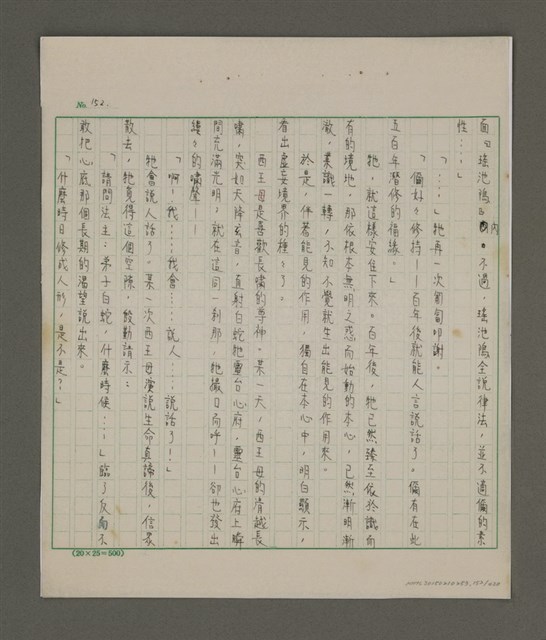 No. 152.
面向瑤池塢內。不過,瑤池塢全說律法,並不適儞的素
性…」
「…」牠再一次匍匐叩謝。
「儞好好修持——百年後就能人言說話了。儞有在此
五百年潛修的福緣。」
牠,就這樣安住下來。百年後,牠已然臻至依於識而
有的境地。那依根本無明之惑而始動的本心,已然漸明漸
澈,業識一轉,不知不覺就生出能見的作用來。
於是,伴著能見的作用,獨自在本心中,明白顯示,
看出虛妄境界的種種了。
西王母是喜歡長嘯的尊神。某一天,西王母的清越長
嘯,突如天降玄音,直射白蛇牠靈台心府,靈台心府上瞬
間充滿元明,就在這同一剎那,牠撮口而呼——卻也發出
縷縷的嘯聲——
「啊!我……我會……說人……說話了!」
牠會說人話了。某一次西王母演說生命真諦後,信眾
散去,牠覓得這個空隙,殷勤請示:
「請問法主:弟子白蛇,什麼時候…!」臨了反而不
敢把心底那個長期的渴望說出來。
「什麼時日修成人形,是不是?」
(20×25=500)